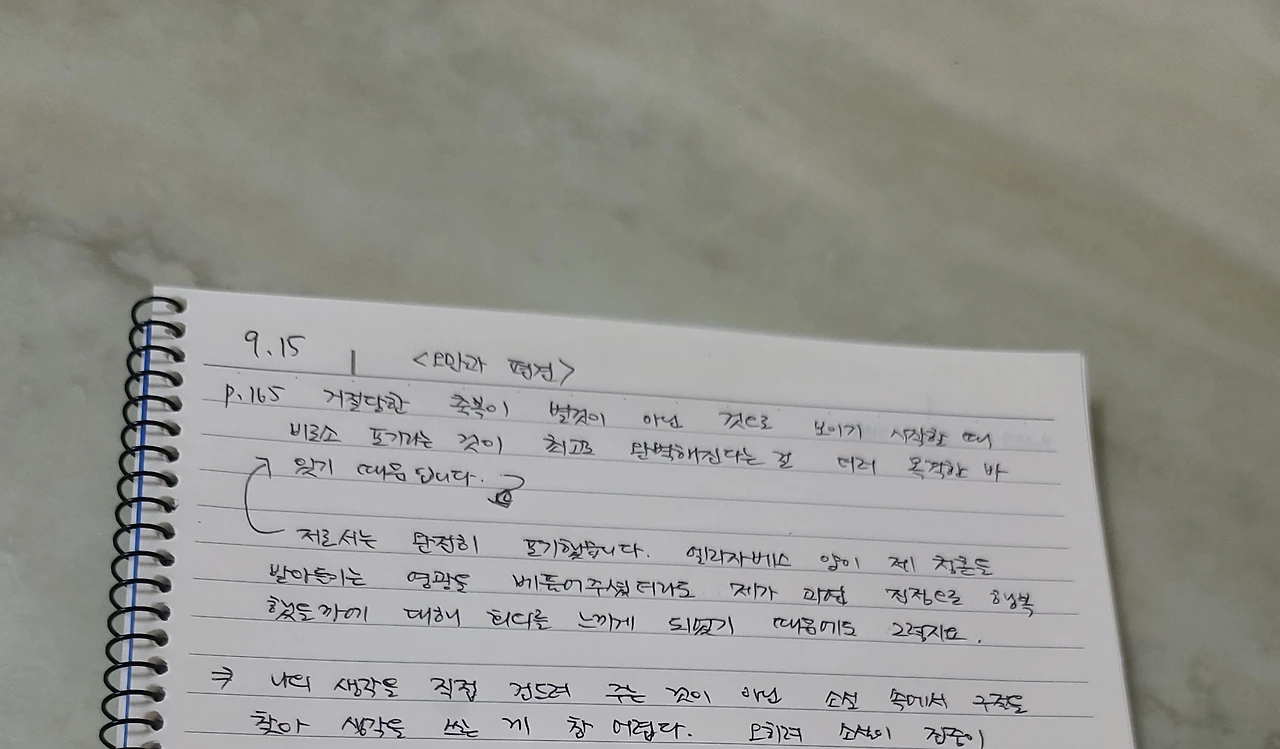 9.15 | <오만과 편견>
p.165 거절당한 축복이 별것이 아닌 것으로 보이기 시작할 때
비로소 포기라는 것이 최고로 완벽해진다는 걸 더러 목격한 바
있기 때문입니다.
저로서는 완전히 포기했습니다. 엘리자베스 양이 제 청혼을
받아들이는 영광을 베풀어주셨더라도 제가 과연 진정으로 행복
했을까에 대해 회의를 느끼게 되었기 때문에도 그렇지요.
⇒ 나의 생각을 직접 건드려 주는 것이 아닌 소설 속에서 구절을
찾아 생각을 쓰는 게 참 어렵다. 오히려 소설이 집중이